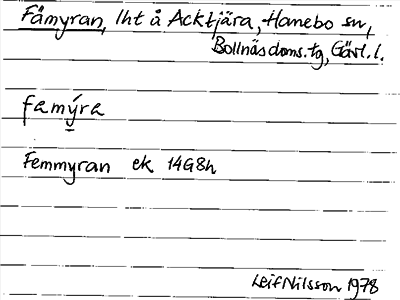 Fåmyran, lht å Acktjära, Hanebo sn,
Bollnäs doms. tg, Gävl. l.
famýra
Femmyran ek 14G8h
Leif Nilsson 1978